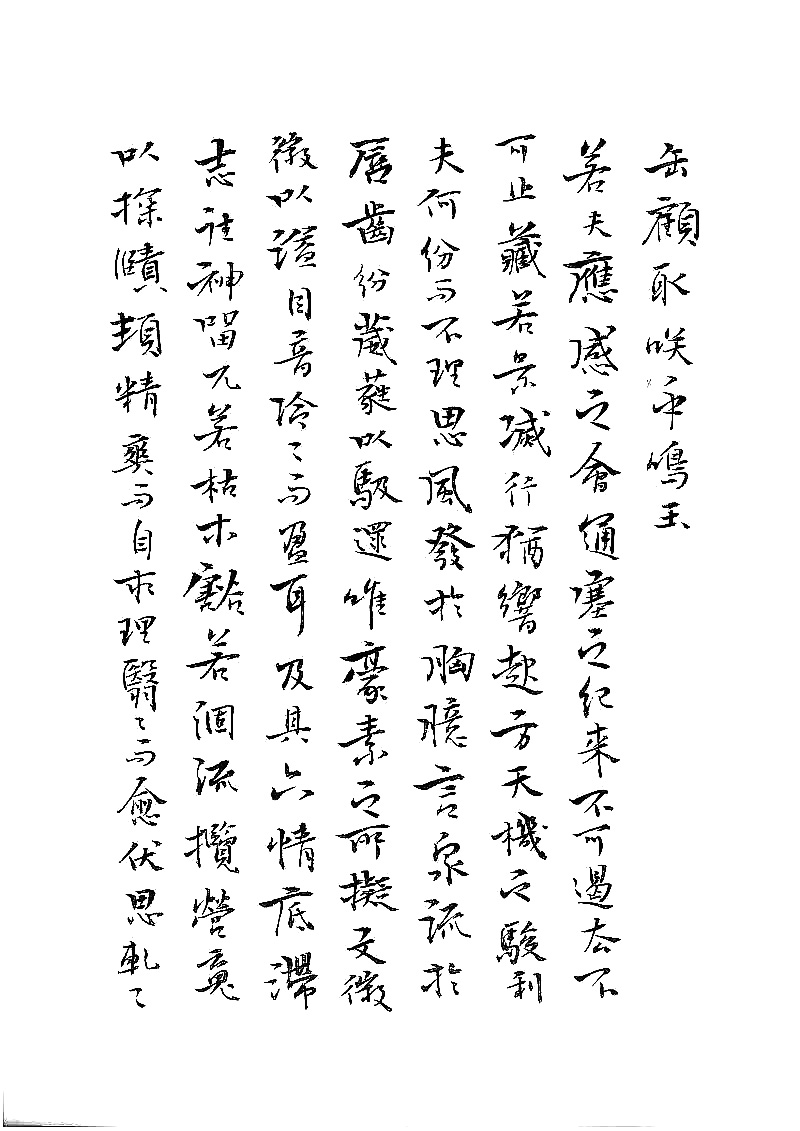 缶顧取咲乎鳴玉
若夫應感之會通塞之紀来不可遏去不
可止藏若景滅行猶響起方天機之駿利
夫何份而不理思風發於胸臆言泉流於
唇齒紛葳蕤以馺遝唯豪素之所擬文徽
徽以溢目音泠〻而盈耳及其六情底滯
志往神留兀若枯木豁若涸流攬營䰟
以探賾頓精爽而自求理翳〻而愈伏思軋〻